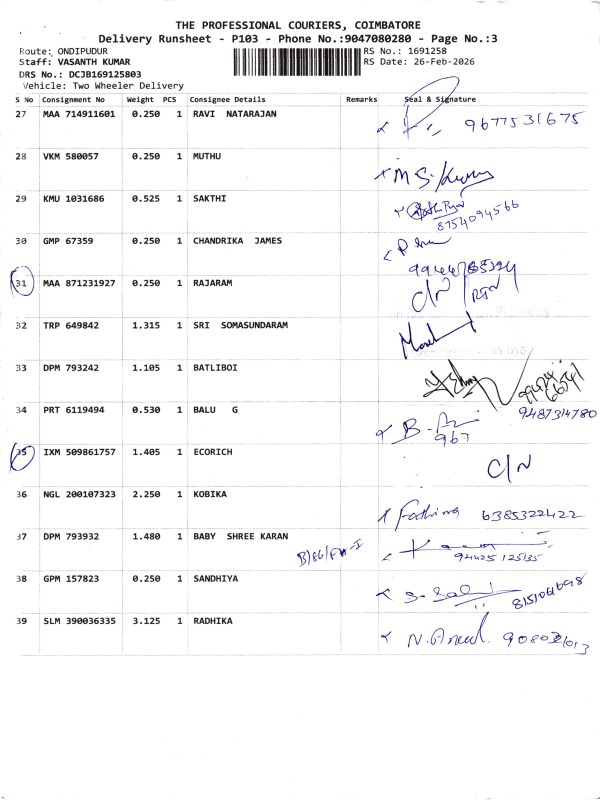 THE PROFESSIONAL COURIERS, COIMBATORE
Delivery Runsheet - P103 - Phone No.:9047080280 - Page No.:3
Route: ONDIPUDUR RS No.: 1691258
Staff: VASANTH KUMAR RS Date: 26-Feb-2026
DRS No.: DCJB169125803
Vehicle: Two Wheeler Delivery
S No Consignment No Weight PCS Consignee Details Remarks Seal & Signature
27 MAA 714911601 0.250 1 RAVI NATARAJAN 9677531675
28 VKM 580057 0.250 1 MUTHU
29 KMU 1031686 0.525 1 SAKTHI
8754094566
30 GMP 67359 0.250 1 CHANDRIKA JAMES
31 MAA 871231927 0.250 1 RAJARAM C/N RTN
32 TRP 649842 1.315 1 SRI SOMASUNDARAM
33 DPM 793242 1.105 1 BATLIBOI
9487314780
34 PRT 6119494 0.530 1 BALU G
967
35 IXM 509861757 1.405 1 ECORICH C/N
36 NGL 200107323 2.250 1 KOBIKA Fathima 6385322422
37 DPM 793932 1.480 1 BABY SHREE KARAN
9442512535
38 GPM 157823 0.250 1 SANDHIYA
39 SLM 390036335 3.125 1 RADHIKA